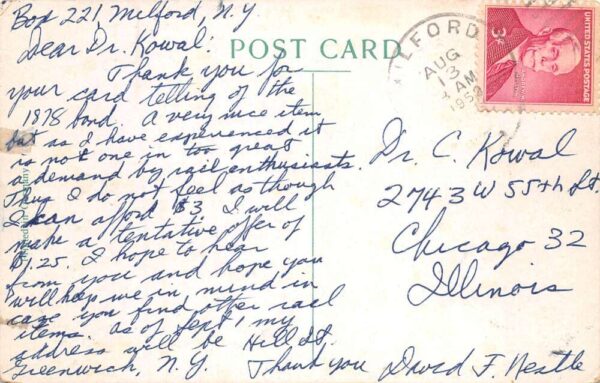 Box 221, Milford, N.Y.
Dear Dr. Kowal:
Thank you for
your card telling of the
1878 bond. A very nice item
but as I have experienced it
is not one in too great
a demand by rail enthusiasts.
Thus I do not feel as though
I can afford $3. I will
make a tentative offer of
$1.25. I hope to hear
from you and hope you
will keep me in mind in
case you find other rail
items. As of Sept 1 my
address will be Hill St.
Greenwich, N.Y. Thank you David F. Nestle
POST CARD
MILFORD
AUG
13
AM
UNITED STATES POSTAGE
3¢
Dr. C. Kowal
2743 W 55th St.
Chicago 32
Illinois